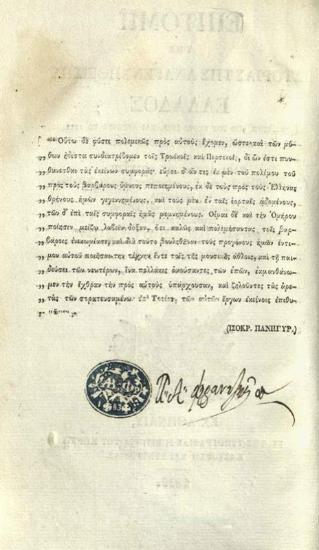 ,,Οὕτω δὲ φύσει πολεμικῶς πρὸς αὐτοὺς ἔχομεν, ὥστε καὶ τῶν μύ-
,,θων ἥδιστα συνδιατρίβομεν τοῖς Τρωϊκοῖς καὶ Περσικοῖς, δι' ὧν ἔστι πυν-
,,θάνεσθαι τὰς ἐκείνων συμφοράς· εὕροι δ' ἄν τις ἐκ μὲν τοῦ πολέμου τοῦ
,,πρὸς τοὺς βαρβάρους ὕμνους πεποιημένους, ἐκ δὲ τοῦ πρὸς τοὺς Ἕλληνας
,,θρήνους ἡμῖν γεγενημένους, καὶ τοὺς μὲν ἐν ταῖς ἑορταῖς ᾀδομένους,
,,τῶν δ' ἐπὶ ταῖς συμφοραῖς ἡμᾶς μεμνημένους. Οἶμαι δὲ καὶ τὴν Ὁμήρου
,,ποίησιν μείζω λαβεῖν δόξαν, ὅτι καλῶς καὶ πολεμήσαντας τοῖς βαρ-
,,βάροις ἐνεκωμίασε· καὶ διὰ τοῦτο βουληθῆναι τοὺς προγόνους ἡμῶν ἔντι-
,,μον αὐτοῦ ποιῆσαι τὴν τέχνην ἔν τε τοῖς τῆς μουσικῆς ἄθλοις, καὶ τῇ παι-
,,δεύσει τῶν νεωτέρων, ἵνα πολλάκις ἀκούοντες τῶν ἐπῶν, ἐκμανθάνω-
,,μεν τὴν ἔχθραν τὴν πρὸς αὐτοὺς ὑπάρχουσαν, καὶ ζηλοῦντες τὰς ἀρε-
,,τὰς τῶν στρατευσαμένων τῶν αὐτῶν ἔργων ἐκείνοις ἐπιθυ-
(ΙΣΟΚΡ. ΠΑΝΗΓΥΡ.)